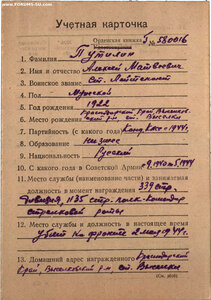 www.FORUMS-SU.com
Учетная карточка
Орденская книжка
Г № 580016
1. Фамилия Путилин
2. Имя и отчество Алексей Матвеевич
3. Воинское звание Ст. Лейтенант
4. Пол Мужской
5. Год рождения 1922
6. Место рождения Краснодарский край,
ст. Выселки
7. Партийность (с какого года)
8. Образование
9. Национальность Русский
10. С какого года в Советской Армии
11. Место службы (наименование части) и занимаемая
должность в момент награждения 339 стр.
дивизия, 1135 стр. полк - командир
стрелковой роты
12. Место службы и должность в настоящее время
Убит на фронте 2 мая 1944 г.
13. Домашний адрес награжденного Краснодарский
край, Выселковский р-н, ст. Выселки
(См. на об.)